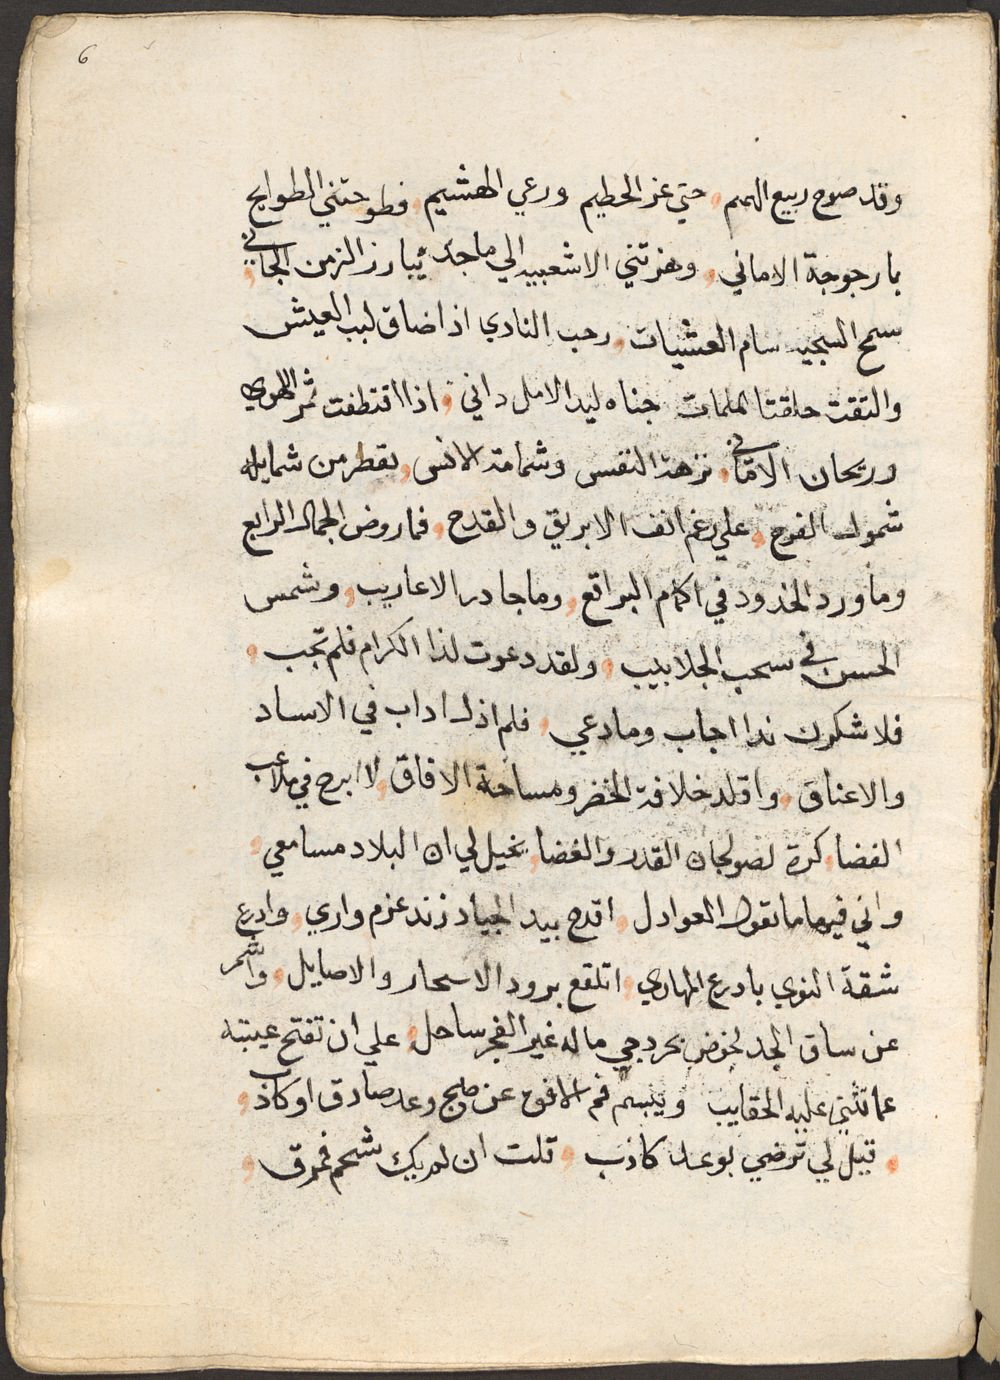 6
وقد صوح ربيع الهمم، حتي عز الحطيم ورعي الهشيم، فطوحتني الطوايح
بارجوحة الاماني، وهزتني الاشعبيه الي ماجد يبارز الزمن الجاني،
سمح السجيه سام العشيات، رحب النادي اذا ضاق لبب العيش
والتقت حلقتا الملمات جناه ليد الامل داني، اذا اقتطفت ثمر اللهوي
وريحان الاماني، نزهة النفس وشمامة الانس، يقطر من شمايله
شمول الفرج، علي رغم انف الابريق والقدح، فما روض الجمال الرايع
وما ورد الخدود في اكمام البراقع، وما جادر الاعاريب، وشمس
الحسن في سحب الجلابيب، ولقد دعوت لذا الكرام فلم تجب،
فلا شكرن ندا اجاب وما دعي، فلم ازل اداب في الاساد
والاعناق، واقلد خلافة الخضر ومساحة الافاق، لا ابرح في ملاعب
الفضا، كرة لصولجان القدر والقضا، يخيل لي ان البلاد مسامعي،
واني فيها ما تقول العوادل، اقدح بيد الجياد زند عزم واري، وادرع
شقة النوي بادرع المهاري، اتلقع برود الاسحار والاصايل، واشمر
عن ساق الجد لخوض بحر دجي ماله غير الفجر ساحل، علي ان تفتح عيبته
عما تثني عليه الحقايب ويبسم فم الافق عن صبح وعد صادق او كاذب،
، قيل لي ترضي بوعد كاذب، قلت ان لم يك شحم فمرق،